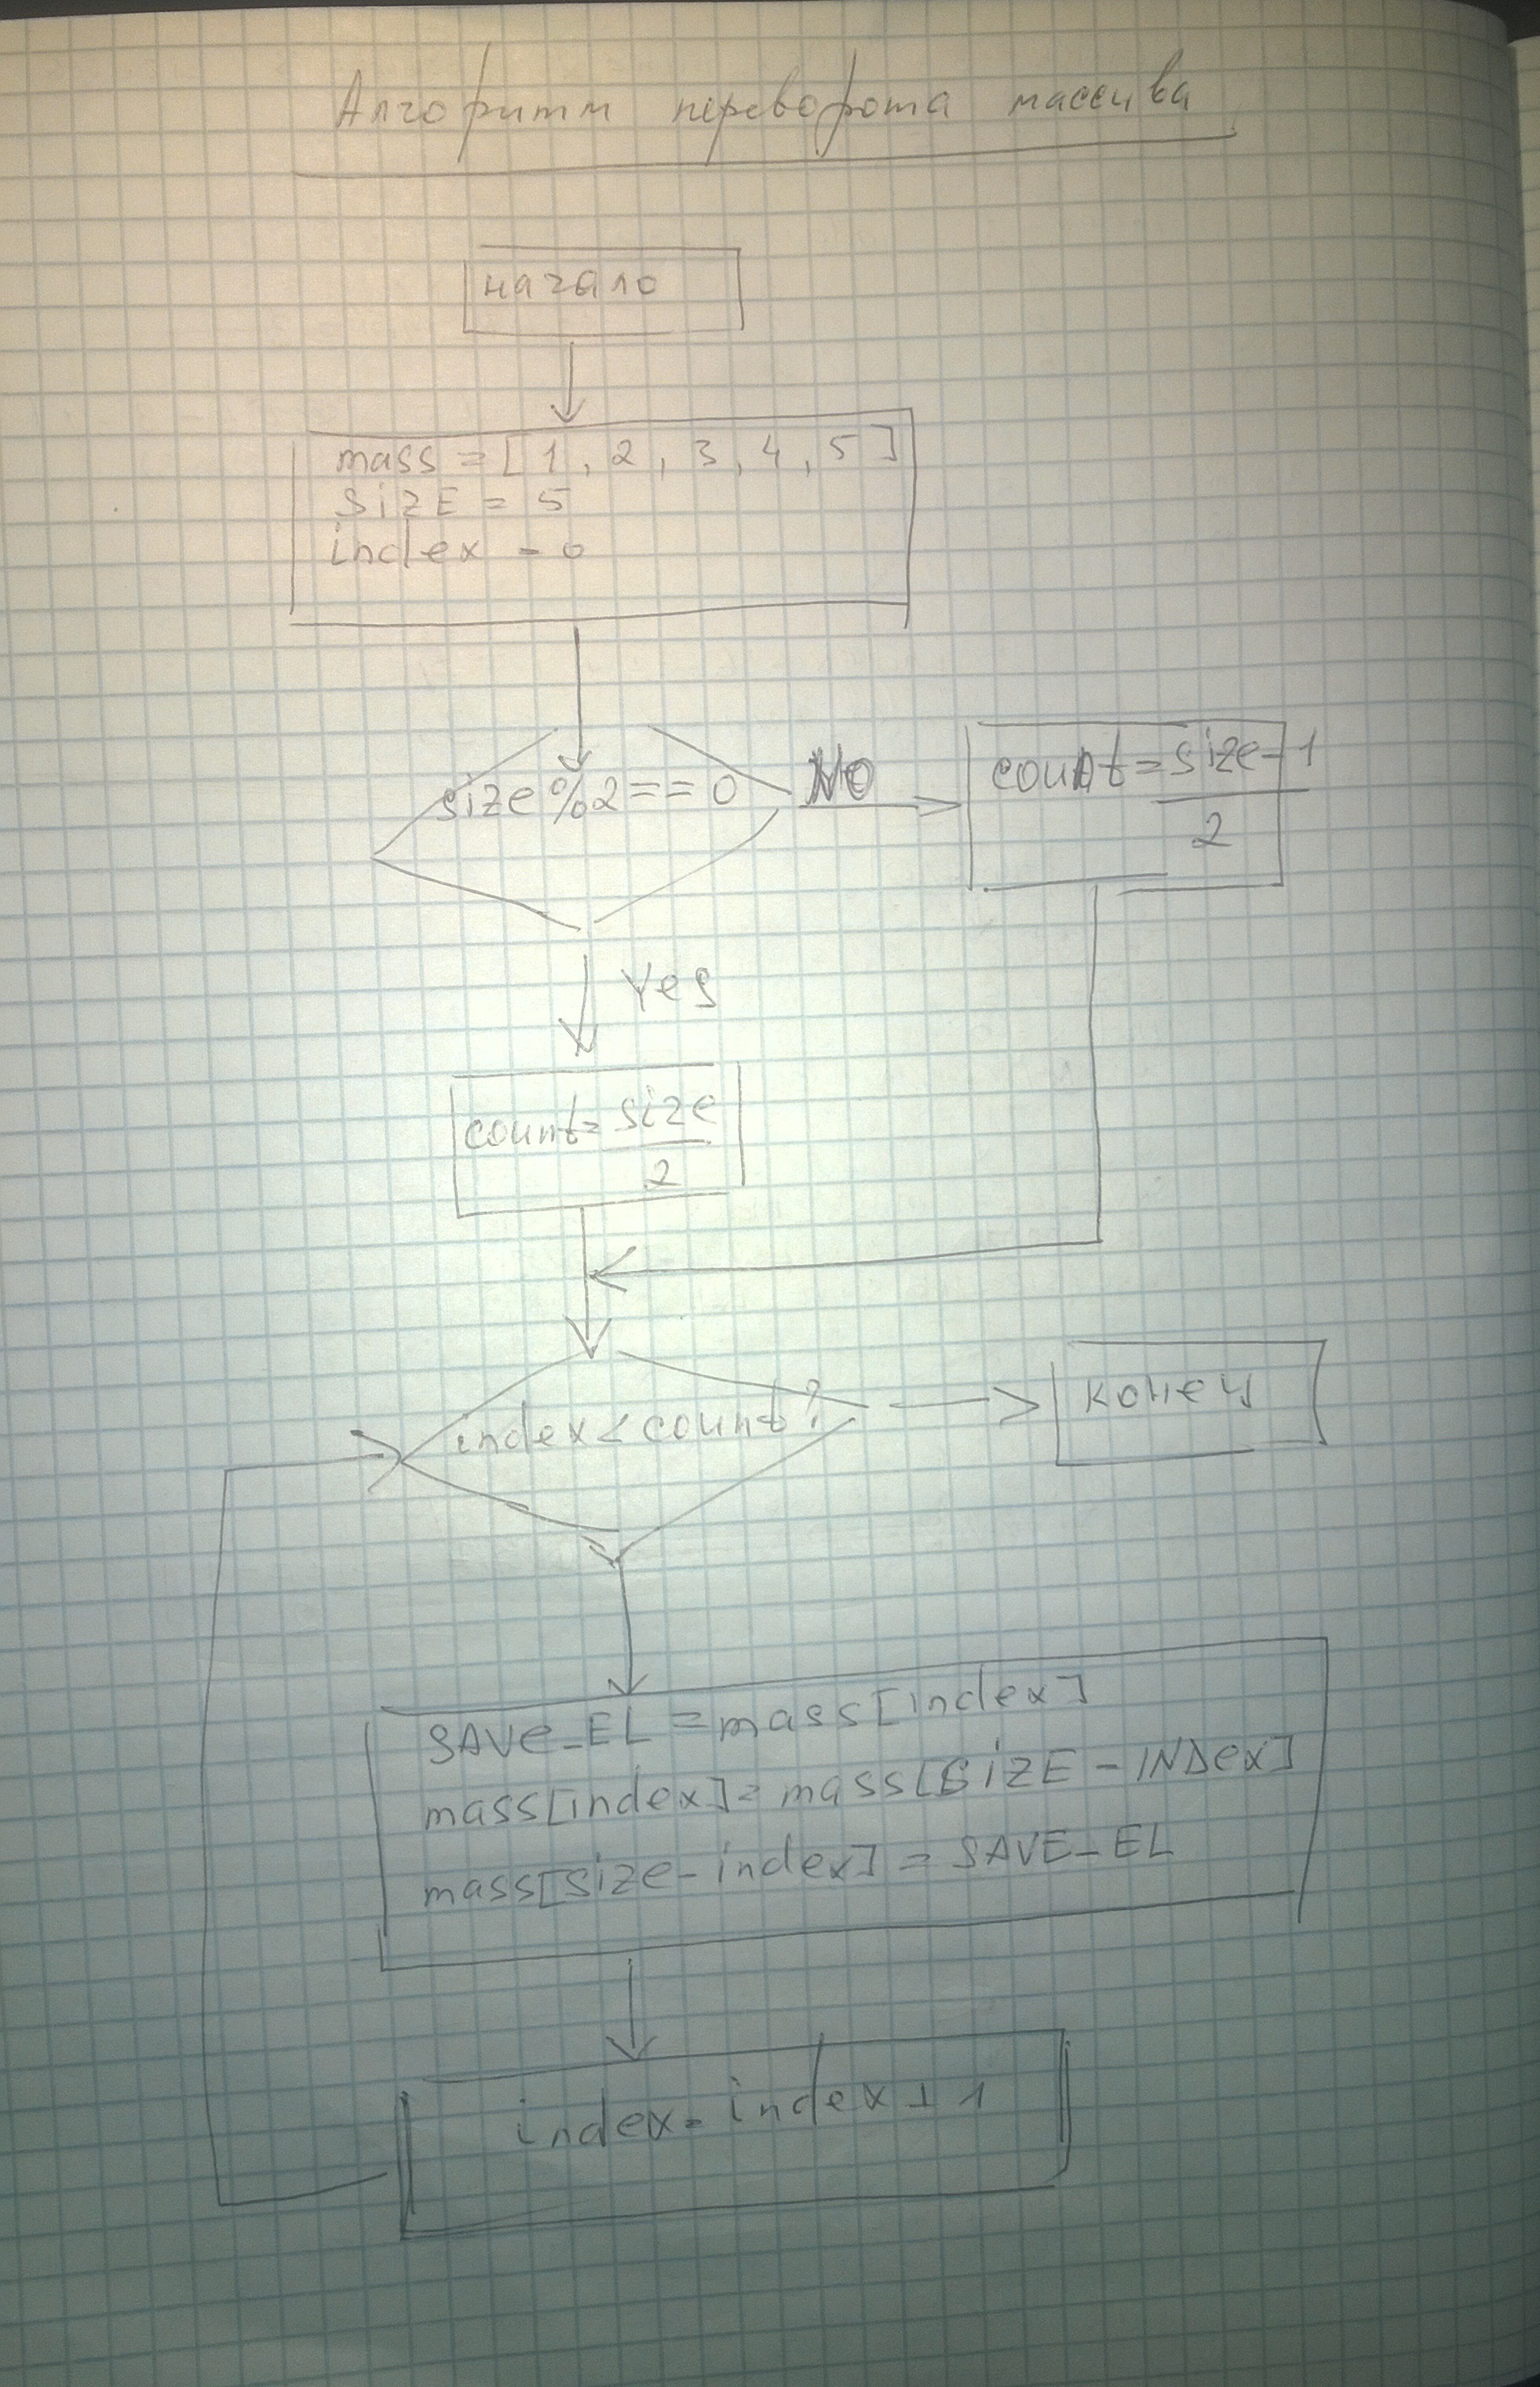 Алгоритм переворота массива
начало
mass = [1, 2, 3, 4, 5]
SIZE = 5
index = 0
size%2==0
No
count=size-1
2
Yes
count=size
2
index<count?
конец
SAVE_EL = mass[index]
mass[index]= mass[SIZE-INDEX]
mass[size-index] = SAVE_EL
index= index+1